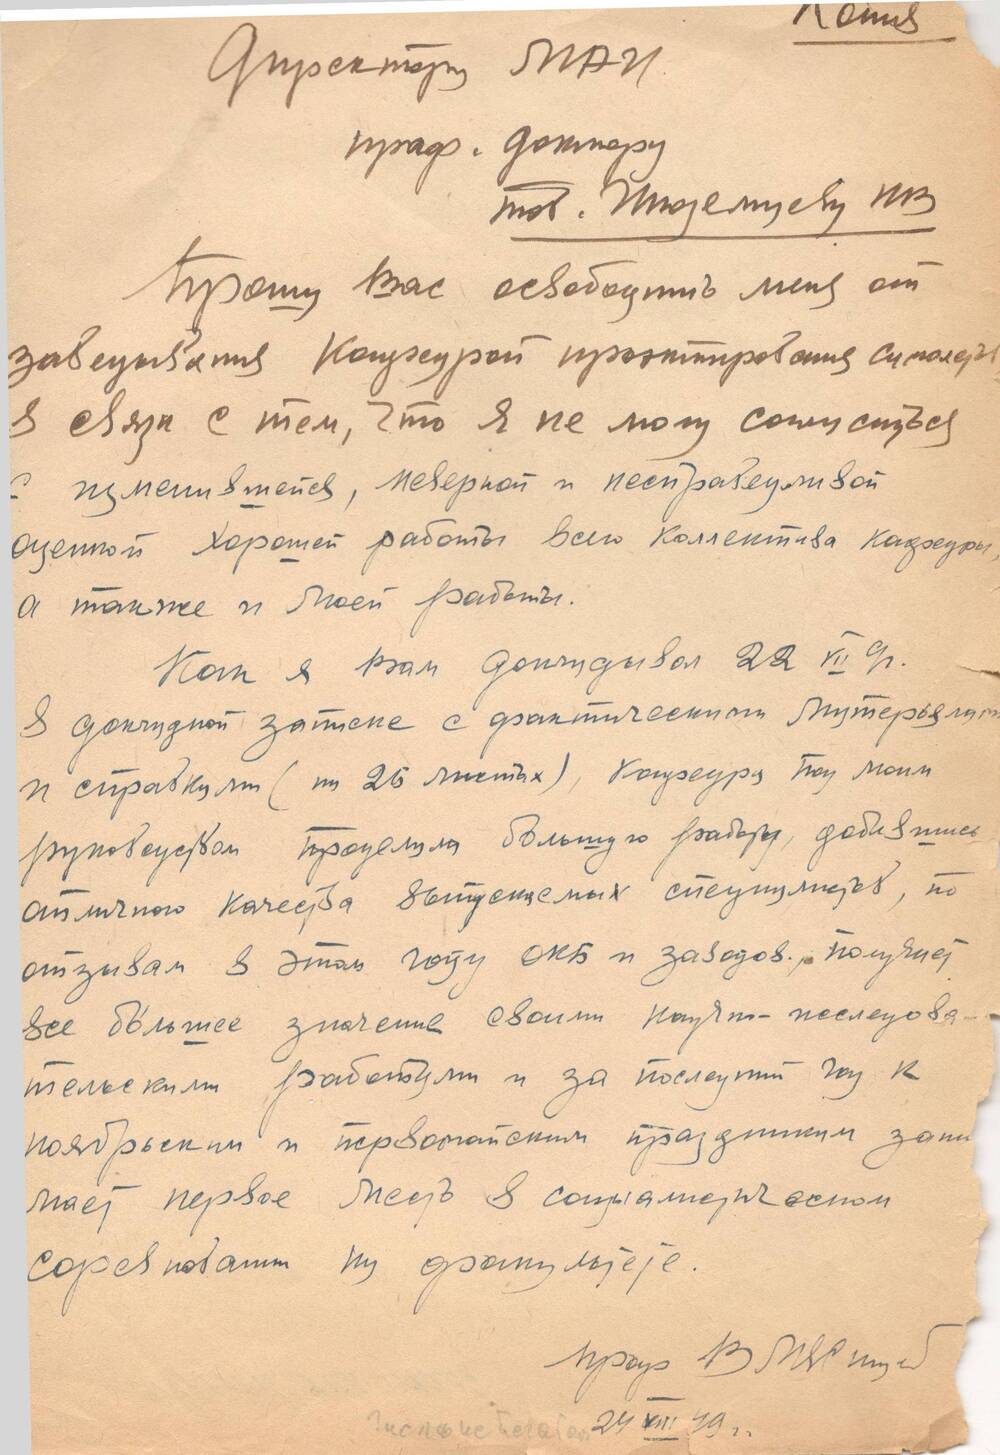 Копия
Директору МАИ.
проф. доктору
тов. Иноземцеву НВ
Прошу Вас освободить меня от
заведывания Кафедрой проэктирования самолетов
в связи с тем, что я не могу согласиться
с изменившейся, неверной и несправедливой
оценкой хорошей работы всего коллектива кафедры,
а также и моей работы.
Как я Вам докладывал 22 VII
в докладной записке с фактическими материалами
и справками (на 26 листах), кафедра под моим
руководством проделала большую работу, добившись
отличного качества выпускаемых специалистов, по
отзывам в этом году ОКБ и заводов., получает
все бо́льшее значение своими научно-исследова-
тельскими работами и за последний год к
ноябрьским и первомайским праздникам зани
мает первое место в социалистическом
соревновании на факультете.
проф В Мясищев
24 VIII 49 г.